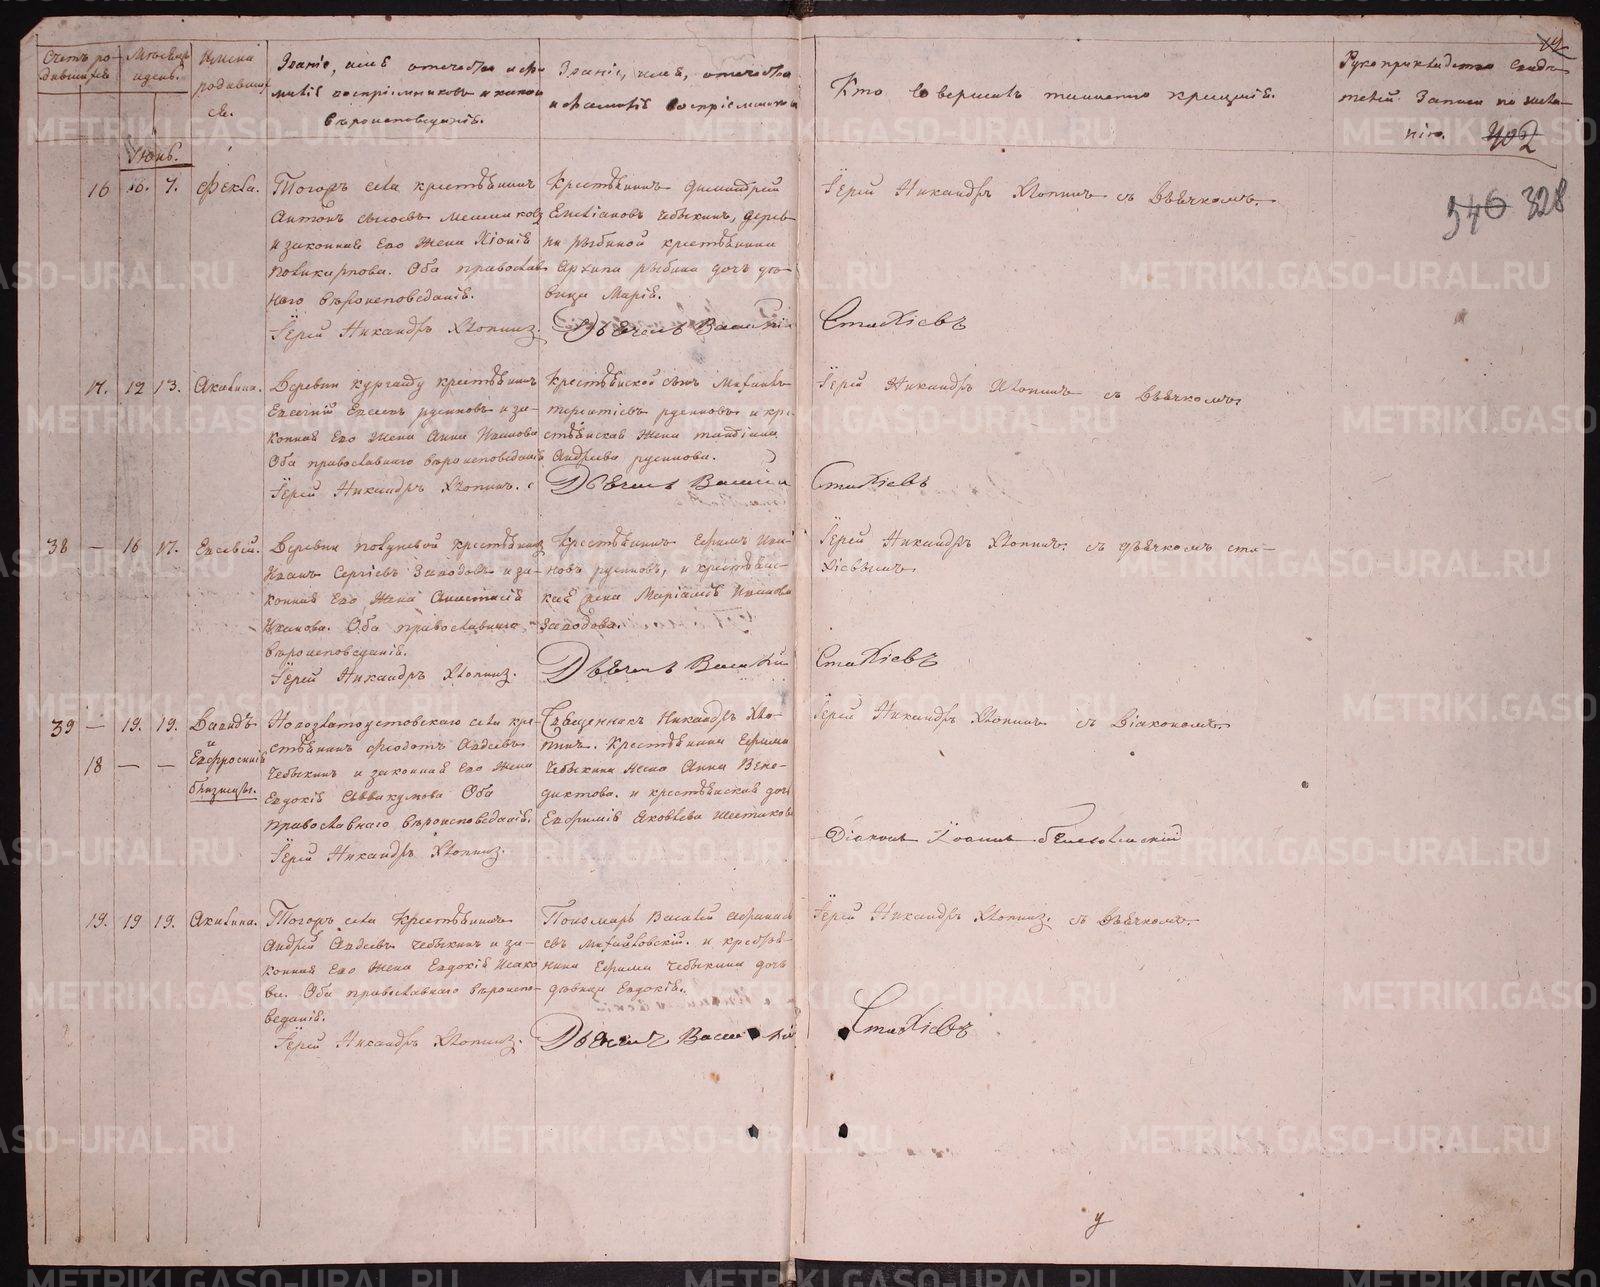 Счетъ ро-
дившихся
Мѣсяцъ
и день.
Имена
родивших
ся.
Званіе, имя, отечество и фа
милія воспріемниковъ и какого
вѣроисповеданія.
Званіе, имя, отечество
и фамилія воспріемниковъ
Кто совершалъ таинство крещенія.
Рукоприкладство свидѣ
телей записи по жела-
нію.
402
546 328
Іюнь.
16 6. 7. Фекла.
Тогожъ села крестьянинъ
Антонъ
и законная его жена Хіонія
Поликарпова. Оба православ
наго вѣроисповеданія.
Іерей Никандръ Хлопинъ.
Крестьянинъ Димитрій
Емеліановъ Чебыкинъ, дерев-
ни Рыбиной крестьянина
Архипа Рыбина дочь дѣ-
вица Марія.
Дьячекъ Василій
Іерей Никандръ Хлопинъ съ Дьячкомъ.
Стахіевъ
17. 12 13. Акилина.
Деревни Курганду крестьянинъ
Евсевій Русиновъ и за-
конная его жена Анна Иванова
Оба православнаго вѣроисповеданія
Іерей Никандръ Хлопинъ.
Крестьянской сынъ
терентіевъ Русиновъ и кре
стьянская жена
Андреева Русинова.
Дьячекъ Василій
Іерей Никандръ Хлопинъ съ Дьячкомъ.
Стахіевъ
38 — 16 17. Евсевій.
Деревни крестьянинъ
Иванъ Сергіевъ Заводовъ и за-
конная его жена Анастасія
Иванова. Оба православнаго
вѣроисповеданія.
Іерей Никандръ Хлопинъ.
Крестьянинъ Ефимъ Ива-
новъ Русиновъ, и крестьянс-
кая жена Маріамія Иванова
Заводова.
Дьячекъ Василій
Іерей Никандръ Хлопинъ съ дьячкомъ Ста-
хіевымъ.
Стахіевъ
39 — 19. 19. Давидъ
и
18 — — Евфросинія
близнецы.
Новозлатоустовскаго села кре-
стьянинъ Феодотъ Авдеевъ
Чебыкинъ и законная его жена
Евдокія Аввакумова Оба
православнаго вѣроисповеданія.
Іерей Никандръ Хлопинъ.
Священникъ Никандръ Хло-
пинъ. Крестьянина Ефима
Чебыкина жена Анна Вене-
диктова. и крестьянская дочь
Евфимія Яковлева
Іерей Никандръ Хлопинъ съ Діакономъ.
Діаконъ Іоаннъ
19. 19 19. Акилина.
Тогожъ села крестьянинъ
Андрей Авдеевъ Чебыкинъ и за-
конная его жена Евдокія Исако
ва. Оба православнаго вѣроиспо-
веданія.
Іерей Никандръ Хлопинъ.
Пономарь Василій Афанась
евъ и крестья-
нина Ефима Чебыкина дочь
дѣвица Евдокія.
Дьячекъ Василій
Іерей Никандръ Хлопинъ. съ Дьячкомъ.
Стахіевъ
METRIKI.GASO-URAL.RU